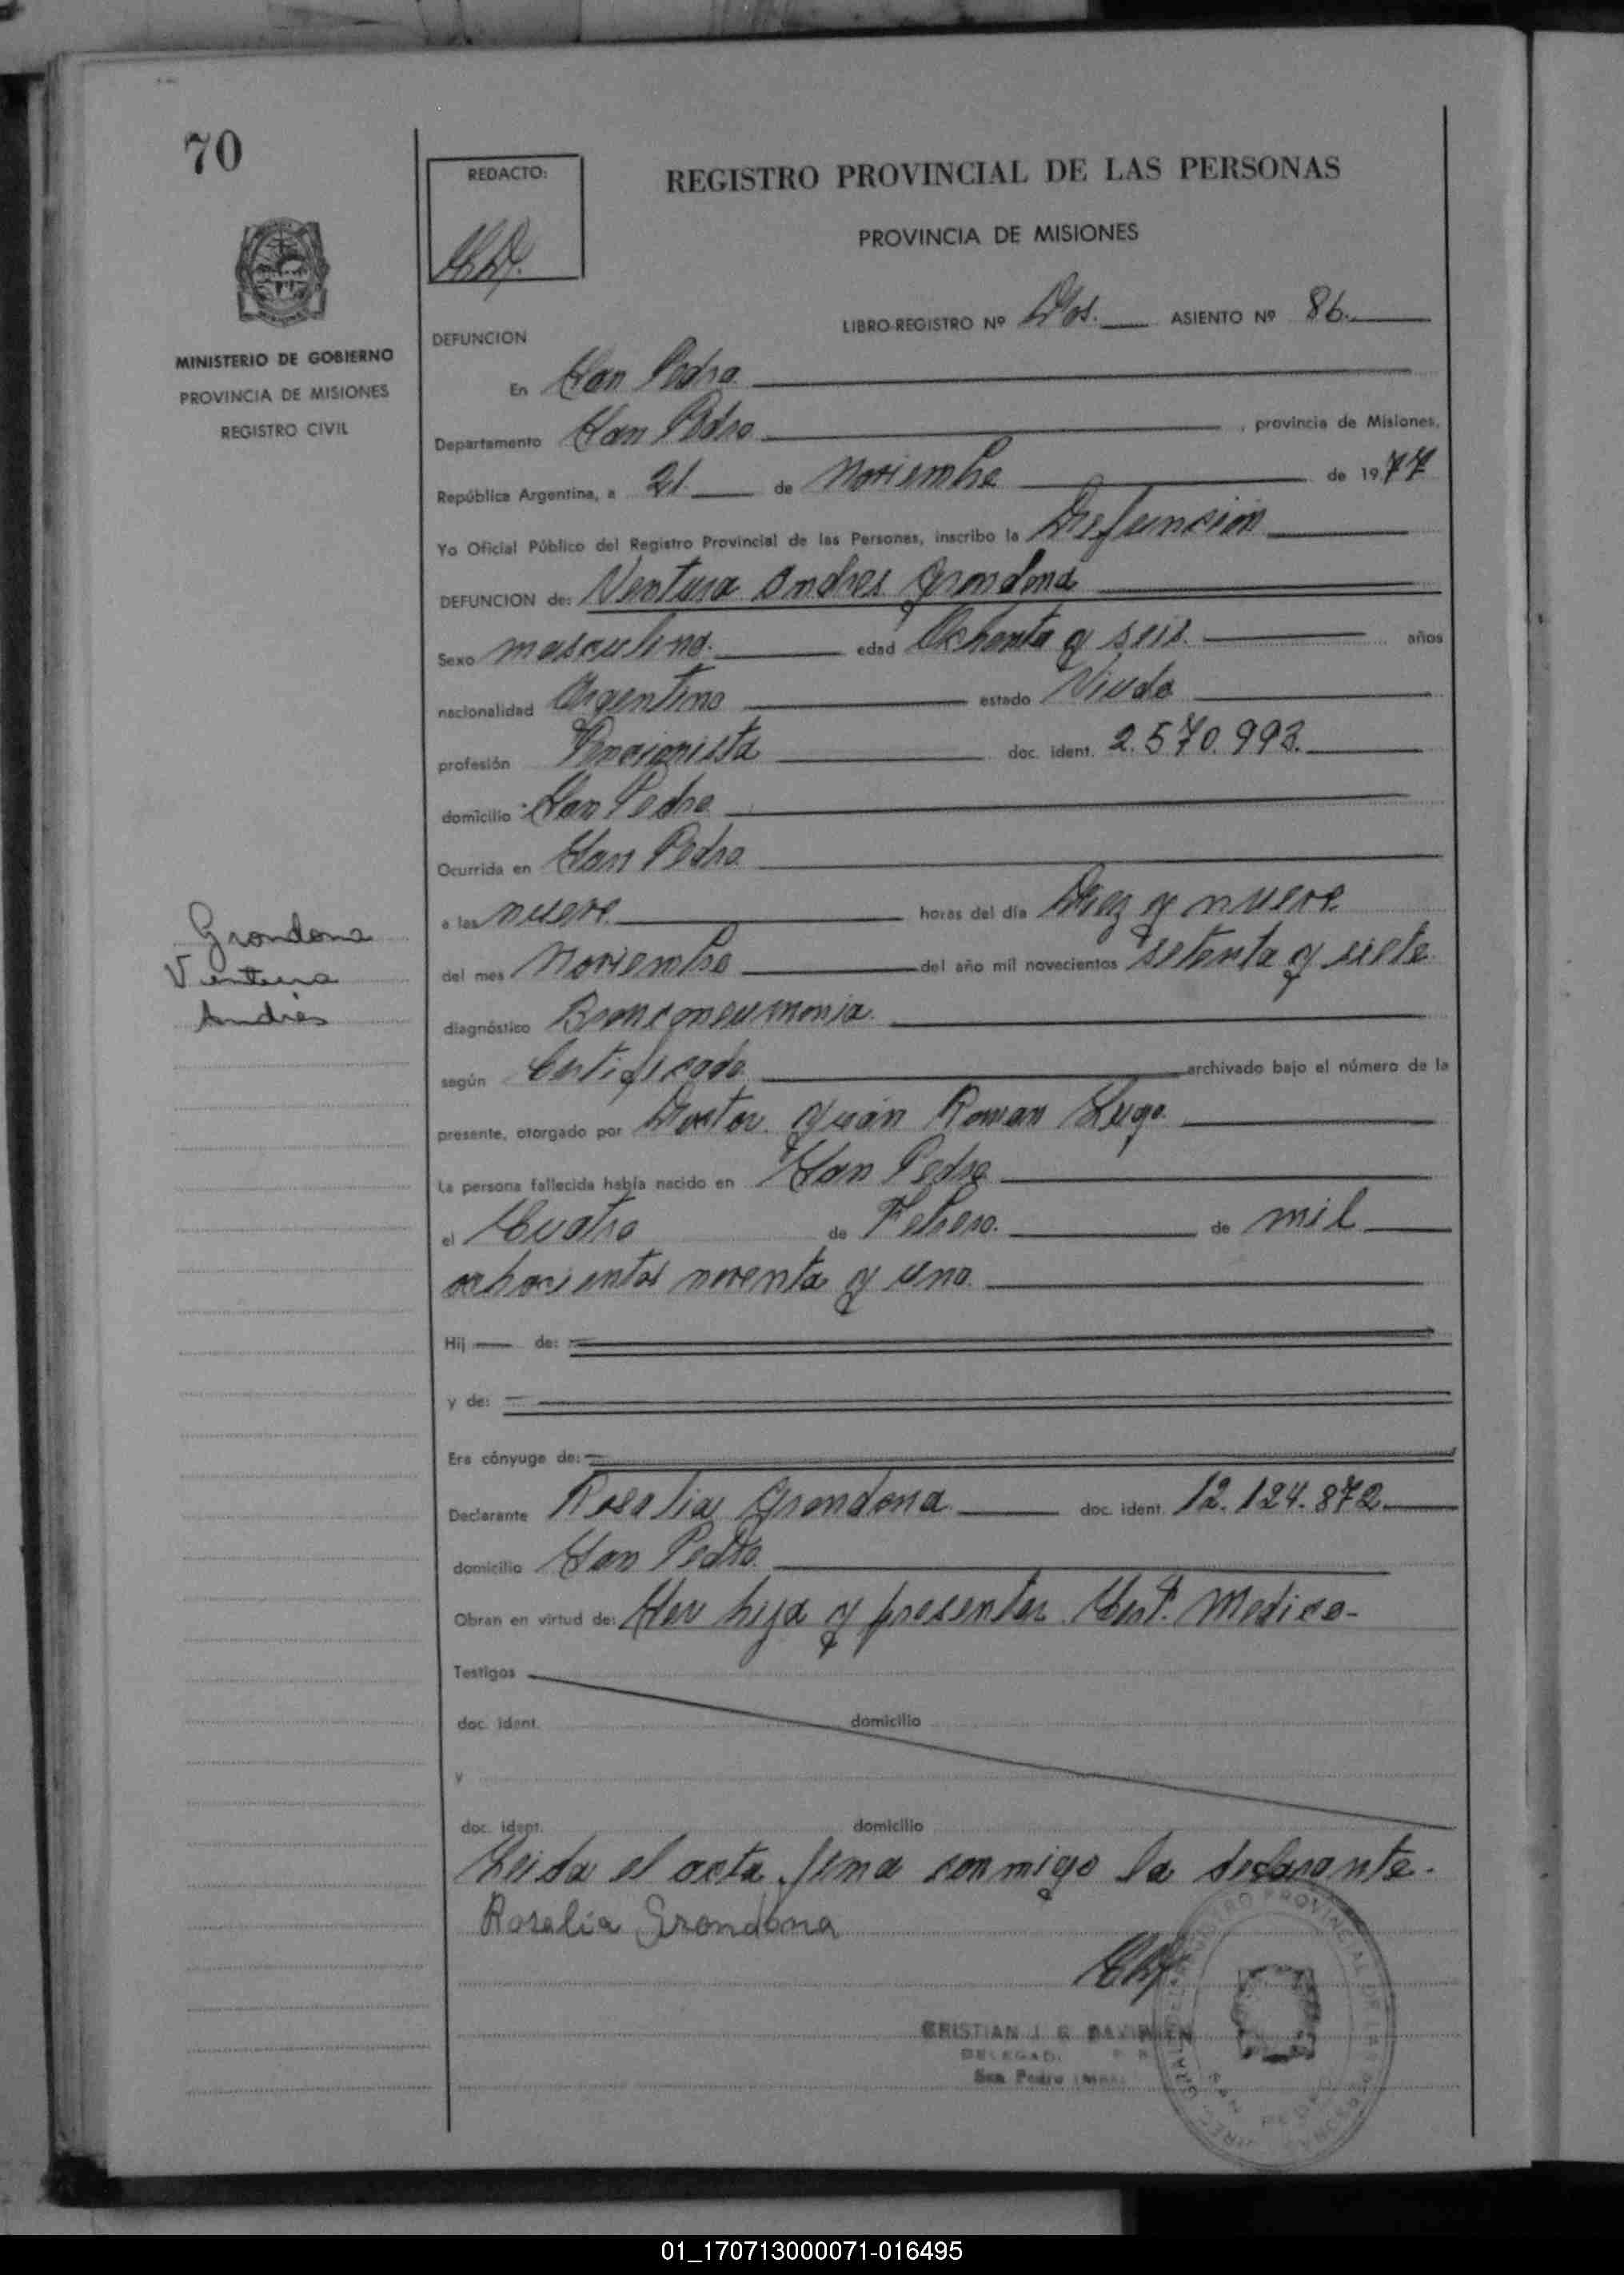 70
REDACTO:
REGISTRO PROVINCIAL DE LAS PERSONAS
PROVINCIA DE MISIONES
LIBRO-REGISTRO Nº Dos. ASIENTO Nº 86.
MINISTERIO DE GOBIERNO
PROVINCIA DE MISIONES
REGISTRO CIVIL
DEFUNCION
En San Pedro
Departamento San Pedro , provincia de Misiones,
República Argentina, a 21 de Noviembre de 1977
Yo Oficial Público del Registro Provincial de las Personas, inscribo la Defuncion
DEFUNCION de: Ventura Andres Grondona
Sexo masculino. edad Ochenta y seis. años
nacionalidad Argentino estado Viudo
profesión Pensionista doc. ident. 2.570.993.
domicilio San Pedro
Ocurrida en San Pedro
a las nueve horas del día Diez y nueve
del mes Noviembre del año mil novecientos setenta y siete
diagnóstico Bronconeumonia.
según Certificado archivado bajo el número de la
presente, otorgado por Doctor. Juan Roman Lugo.
La persona fallecida había nacido en San Pedro
el Cuatro de Febrero. de mil
ochocientos noventa y uno.
Hij de:
y de:
Era cónyuge de:
Declarante Rosalia Grondona doc. ident. 12.124.872.
domicilio San Pedro.
Obran en virtud de: Ser hija y presentar Cert. Medico-
Testigos
doc. ident. domicilio
y
doc. ident. domicilio
Leida el acta firma conmigo la declarante.
Rosalia Grondona
CRISTIAN J.
DELEGAD
San Pedro
Grondona
Ventura
Andrés
01_170713000071-016495